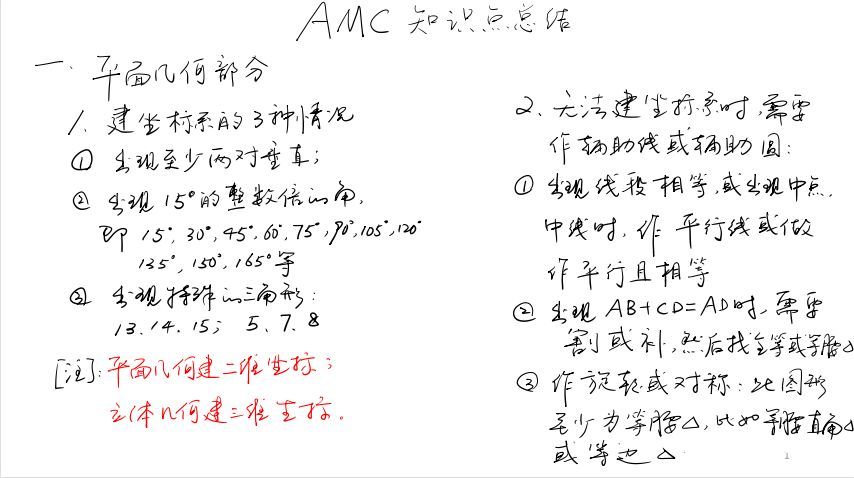 AMC 知识点总结
一、平面几何部分
1、建坐标系的3种情况
① 出现至少两对垂直;
② 出现15°的整数倍的角,
即 15°, 30°, 45°, 60°, 75°, 90°, 105°, 120°
135°, 150°, 165°等
③ 出现特殊的三角形:
13、14、15; 5、7、8
[注]: 平面几何建二维坐标;
立体几何建三维坐标.
2、无法建坐标系时,需要
作辅助线或辅助圆:
① 出现线段相等,或出现中点,
中线时,作平行线或做
作平行且相等
② 出现 AB+CD=AD时,需要
割或补,然后找全等或等腰△
③ 作旋转或对称:此图形
至少为等腰△,比如等腰直角△
或等边△
1